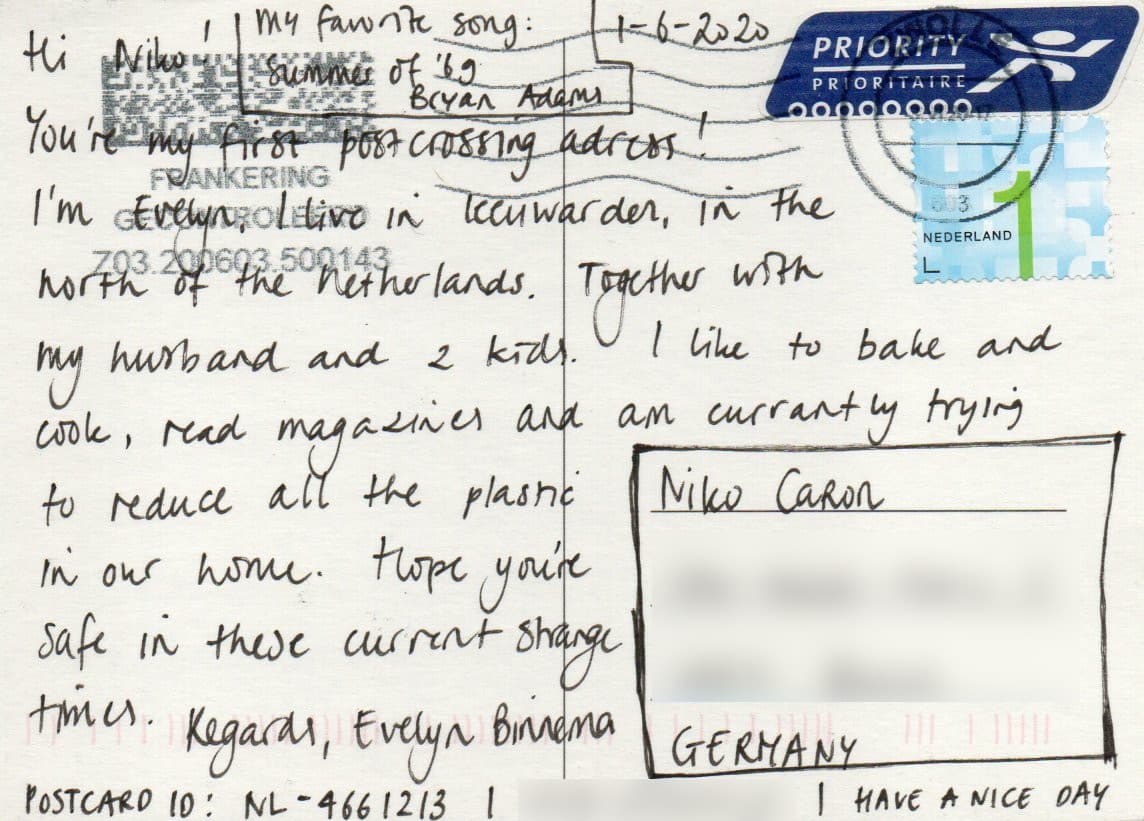 Hi Niko!
My favorite song:
Summer of '69
Bryan Adams
1-6-2020
PRIORITY
PRIORITAIRE
You're my first postcrossing adress!
FRANKERING
I'm Evelyn, I live in Leeuwarden, in the
Z03.200603.500143
NEDERLAND
1
L
north of the Netherlands. Together with
my husband and 2 kids. I like to bake and
cook, read magazines and am currantly trying
to reduce all the plastic
in our home. Hope you're
safe in these current strange
times. Regards, Evelyn Binnema
Niko Caron
GERMANY
POSTCARD ID: NL-4661213 |
| HAVE A NICE DAY